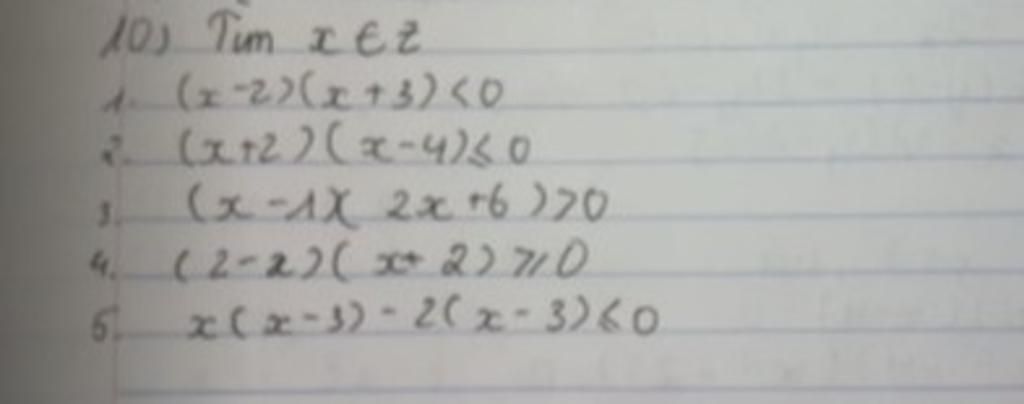 10) Tìm x ∈ Z
1. (x-2)(x+3)<0
2. (x+2)(x-4)≤0
3. (x-1)(2x+6)>0
4. (2-x)(x+2)≥0
5. x(x-3)-2(x-3)≤0